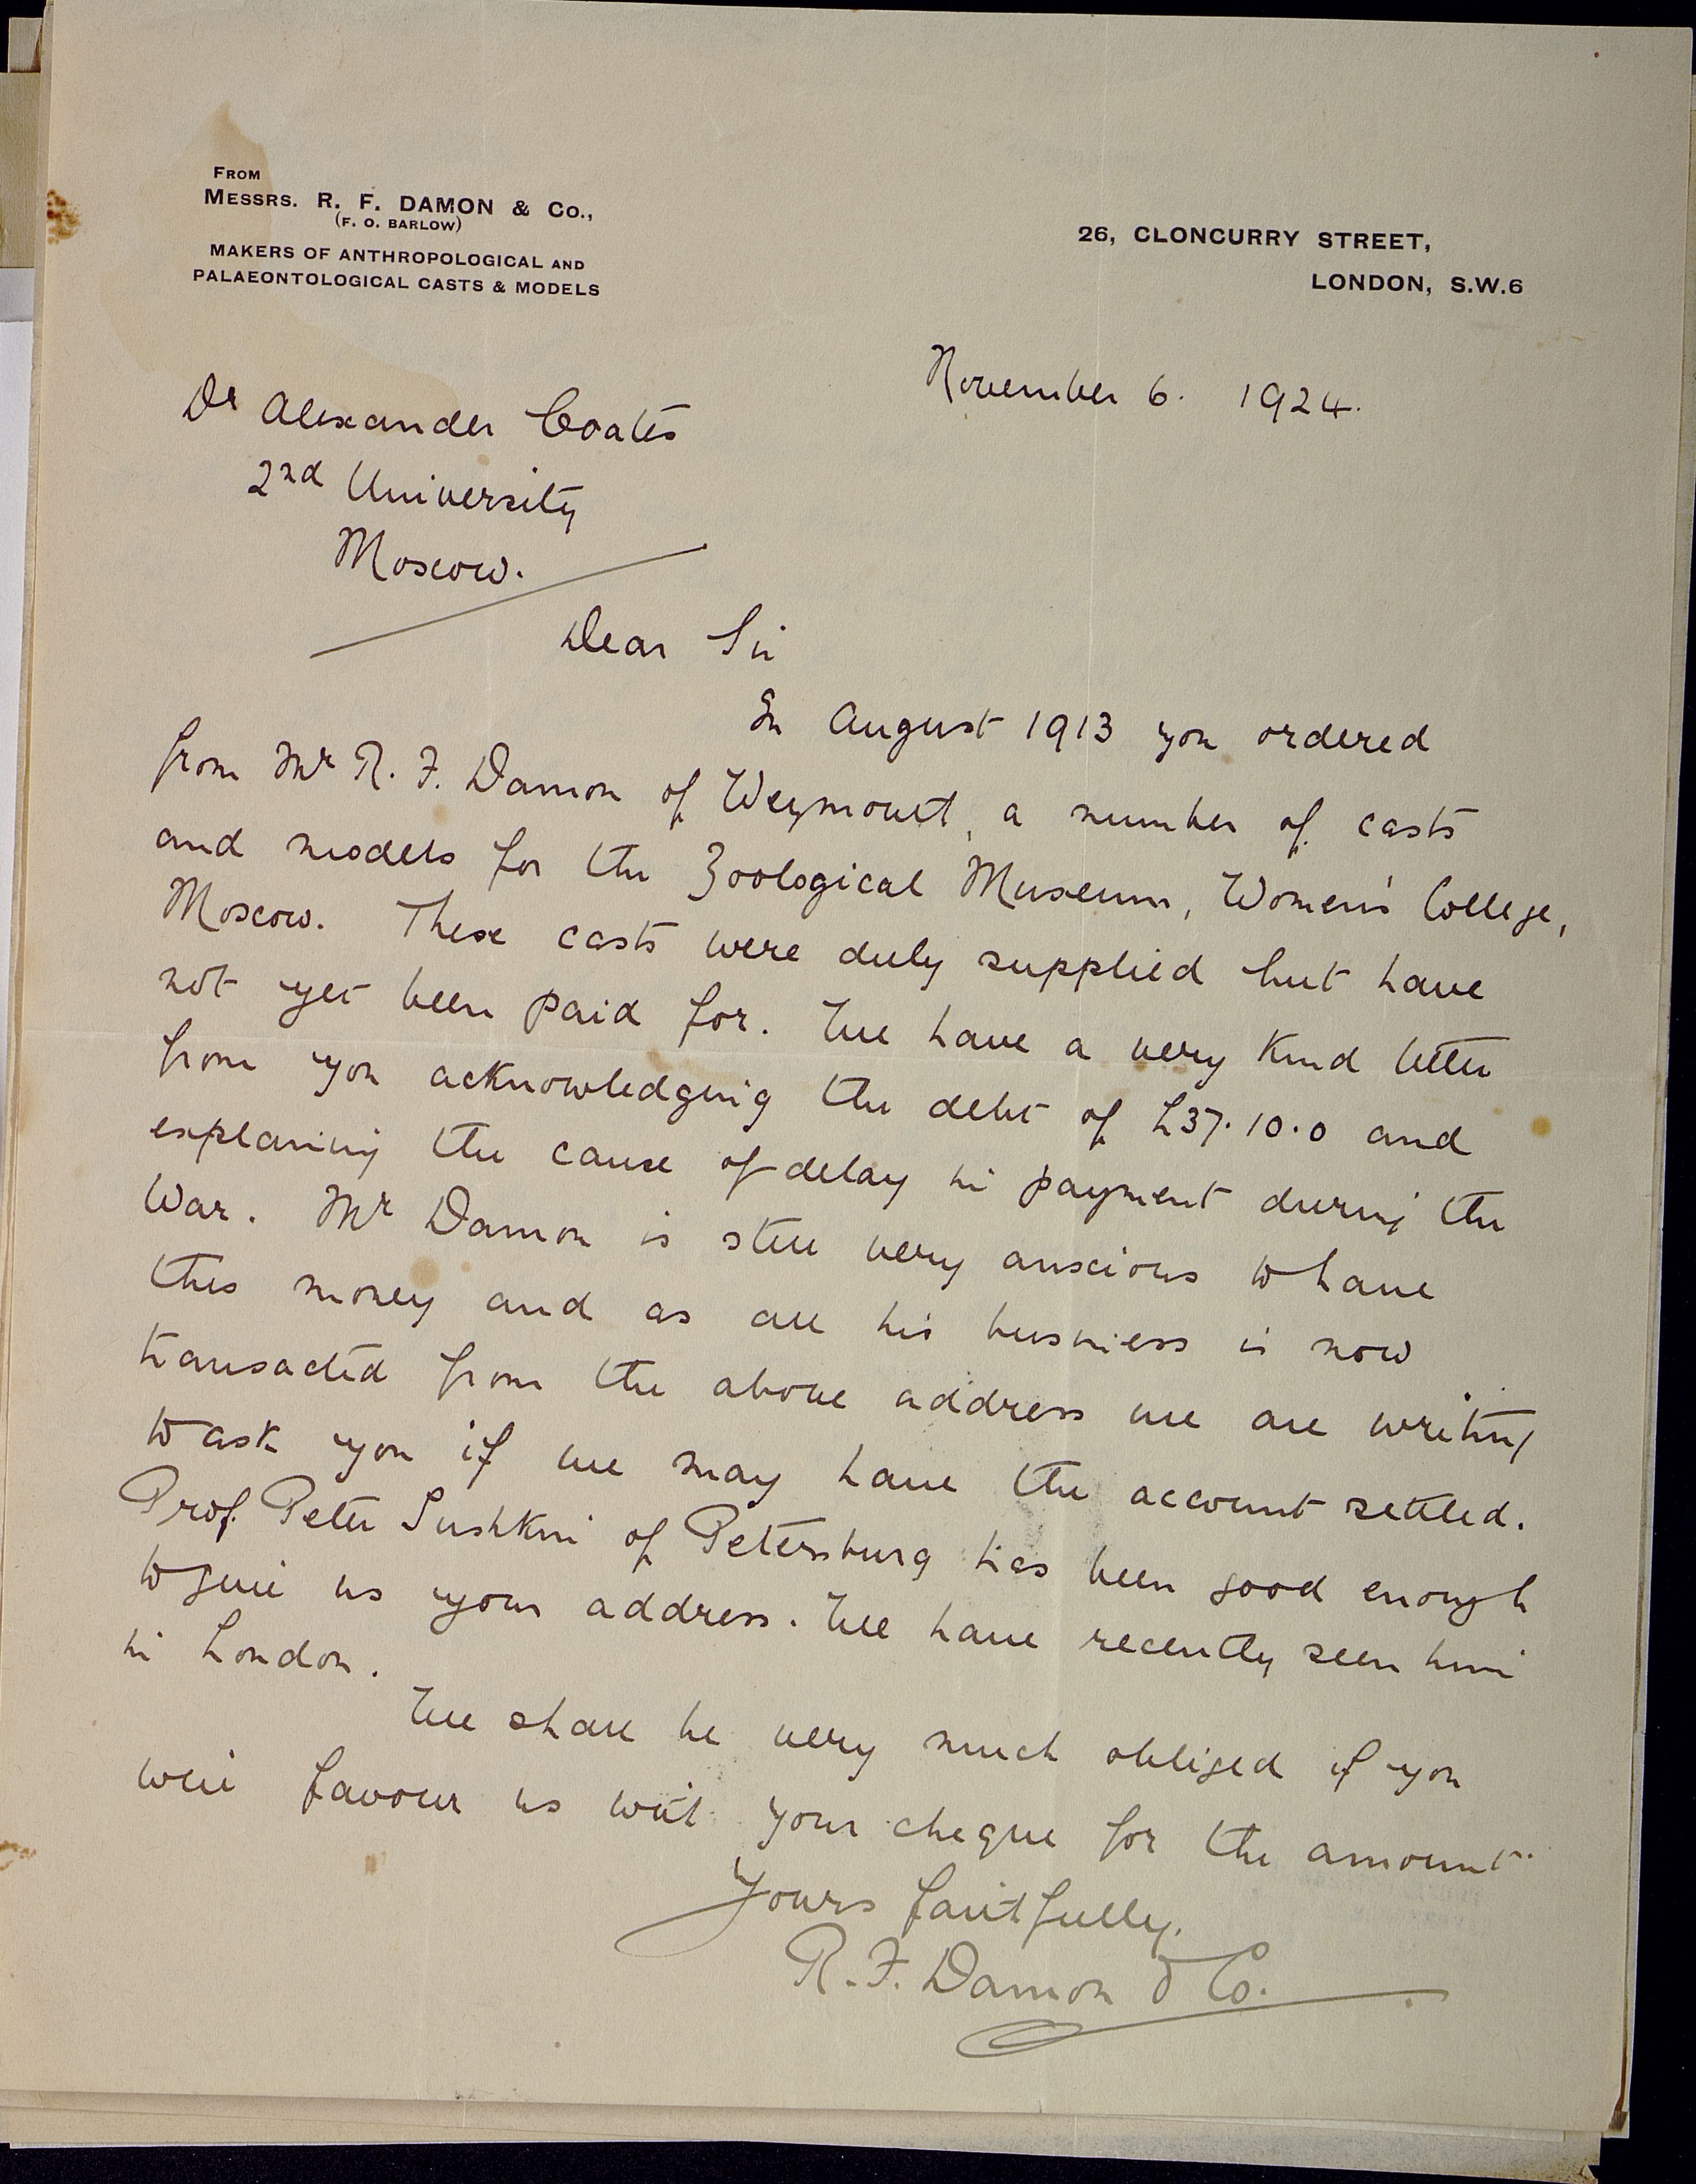 FROM
MESSRS. R. F. DAMON & CO.,
(F. O. BARLOW)
MAKERS OF ANTHROPOLOGICAL AND
PALAEONTOLOGICAL CASTS & MODELS
26, CLONCURRY STREET,
LONDON, S.W.6
November 6. 1924.
Dr Alexander Coates
2nd University
Moscow.
Dear Sir
In August 1913 you ordered
from Mr R. F. Damon of Weymouth, a number of casts
and models for the Zoological Museum, Women's College,
Moscow. These casts were duly supplied but have
not yet been paid for. We have a very kind letter
from you acknowledging the debt of £37.10.0 and
explaning the cause of delay in payment during the
War. Mr Damon is still very anxious to have
this money and as all his business is now
transacted from the above address we are writing
to ask you if we may have the account settled.
Prof. Peter Sushkin of Petersburg has been good enough
to give us your address. We have recently seen him
in London.
We shall be very much obliged if you
will favour us with your cheque for the amount.
Yours faithfully,
R. F. Damon & Co.